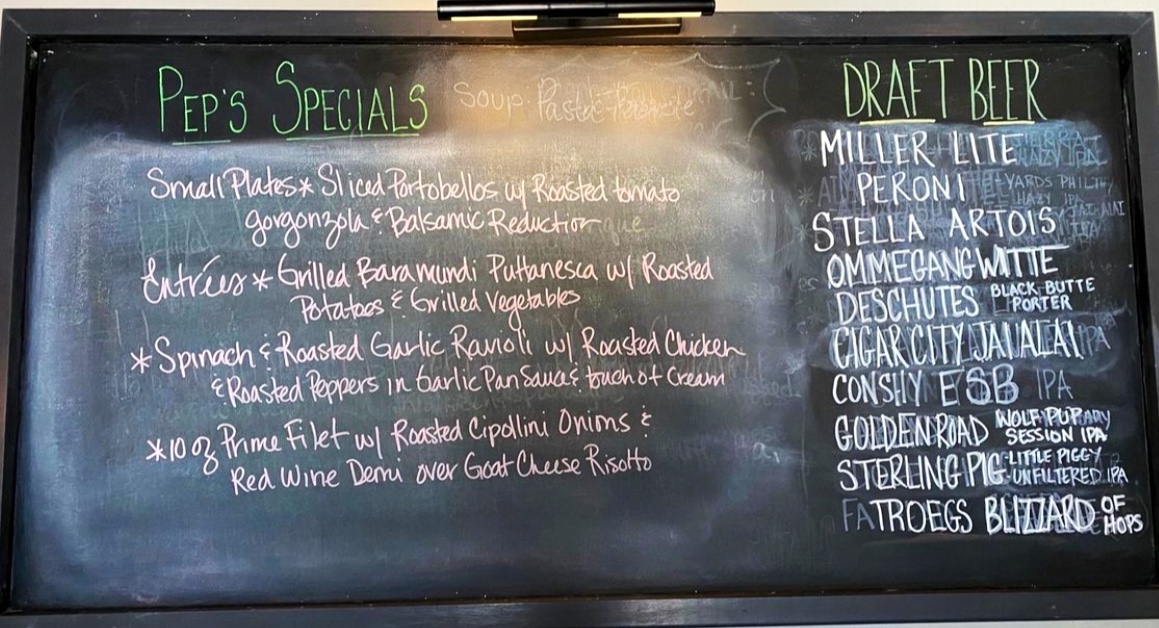 PEP'S SPECIALS
Soup Pasta
Small Plates * Sliced Portobellos w/ Roasted tomato
gorgonzola & Balsamic Reduction
Entrées * Grilled Baramundi Puttanesca w/ Roasted
Potatoes & Grilled Vegetables
* Spinach & Roasted Garlic Ravioli w/ Roasted Chicken
& Roasted Peppers in Garlic Pan Sauce & touch of Cream
* 10 oz Prime Filet w/ Roasted Cipollini Onions &
Red Wine Demi over Goat Cheese Risotto
DRAFT BEER
MILLER LITE
PERONI
STELLA ARTOIS
OMMEGANG WITTE
DESCHUTES BLACK BUTTE
PORTER
CIGAR CITY JAI ALAI
CONSHY ESB IPA
GOLDEN ROAD WOLF PUP
SESSION IPA
STERLING PIG LITTLE PIGGY
UNFILTERED IPA
TROEGS BLIZZARD OF
HOPS